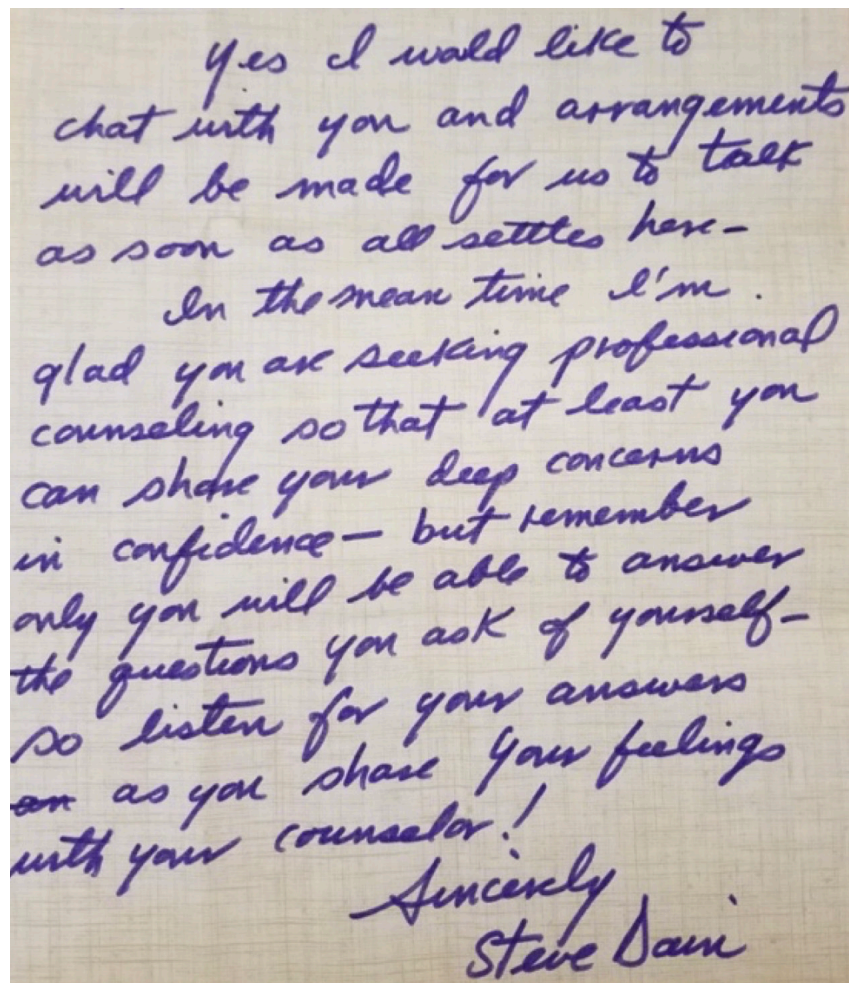 Yes I would like to
chat with you and arrangements
will be made for us to talk
as soon as all settles here-
In the mean time I'm
glad you are seeking professional
counseling so that at least you
can share your deep concerns
in confidence - but remember
only you will be able to answer
the questions you ask of yourself-
so listen for your answers
as you share your feelings
with your counselor!
Sincerely
Steve Dain